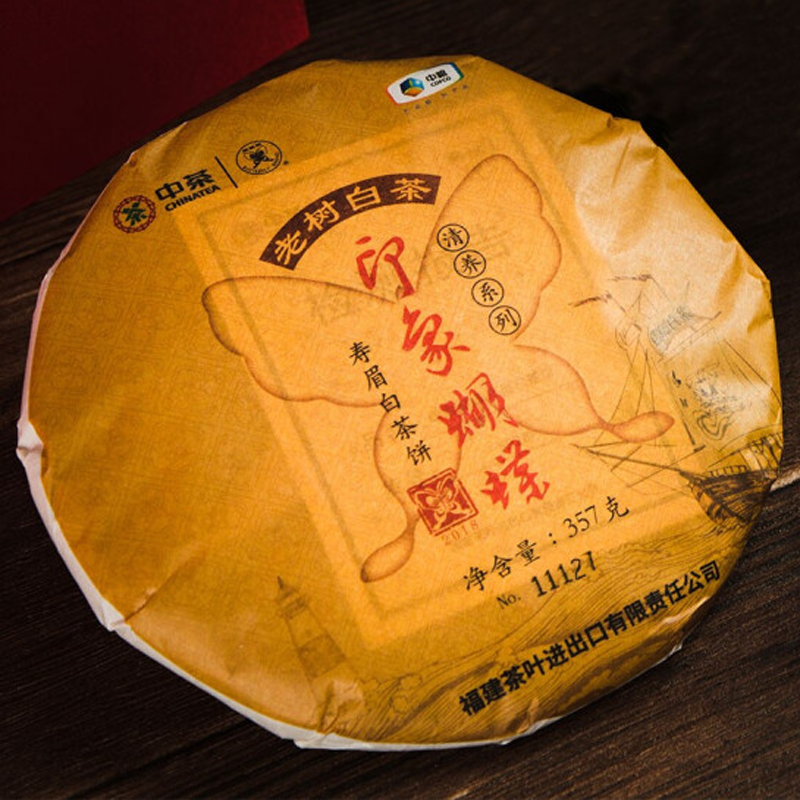 中粮
COFCO
中茶
CHINATEA
老树白茶
清养系列
印象蝴蝶
寿眉白茶饼
2018
净含量：357克
No. 11127
福建茶叶进出口有限责任公司